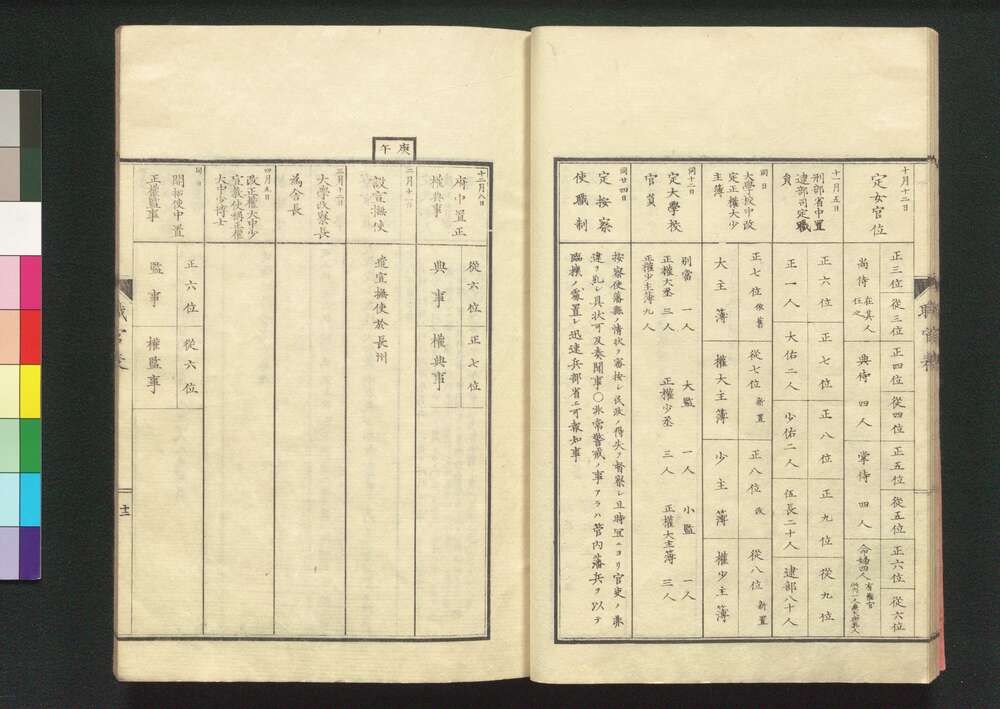 十月十二日
定女官位
正三位 從三位 正四位 從四位 正五位 從五位 正六位 從六位
尚侍 在其人任之 典侍 四人 掌侍 四人 命婦四人
十一月五日
刑部省中置
逮部司定職
員
正六位 正七位 正八位 正九位 從九位
正一人 大佑二人 少佑二人 伍長二十人 逮部八十人
同日
大學校中改
定正權大少
主簿
正七位 依舊 從七位 新置 正八位 改 從八位 新置
大主簿 權大主簿 少主簿 權少主簿
同十二日
定大學校
官員
別當 一人 大監 一人 小監 一人
正權大丞 三人 正權少丞 三人 正權大主簿 三人
正權少主簿九人
同廿四日
定按察
使職制
按察使藩縣ノ情狀ヲ審按シ民政ノ得失ヲ督察シ且時宜ニヨリ官吏ノ非
違ヲ糺シ具狀可及奏聞事〇非常警戒ノ事アラハ管內藩兵ヲ以テ
臨機ノ處置シ迅速兵部省ニ可報知事
職官表
庚午
十二月八日
府中置正
權典事
從六位 正七位
典事 權典事
二月十一日
設宣撫使
遣宣撫使於長州
三月十二日
大學改察長
為舍長
四月五日
改正權大中少
宣教使博正權
大中少博士
同日
開拓使中置
正權監事
正六位 從六位
監事 權監事
職官表
十二